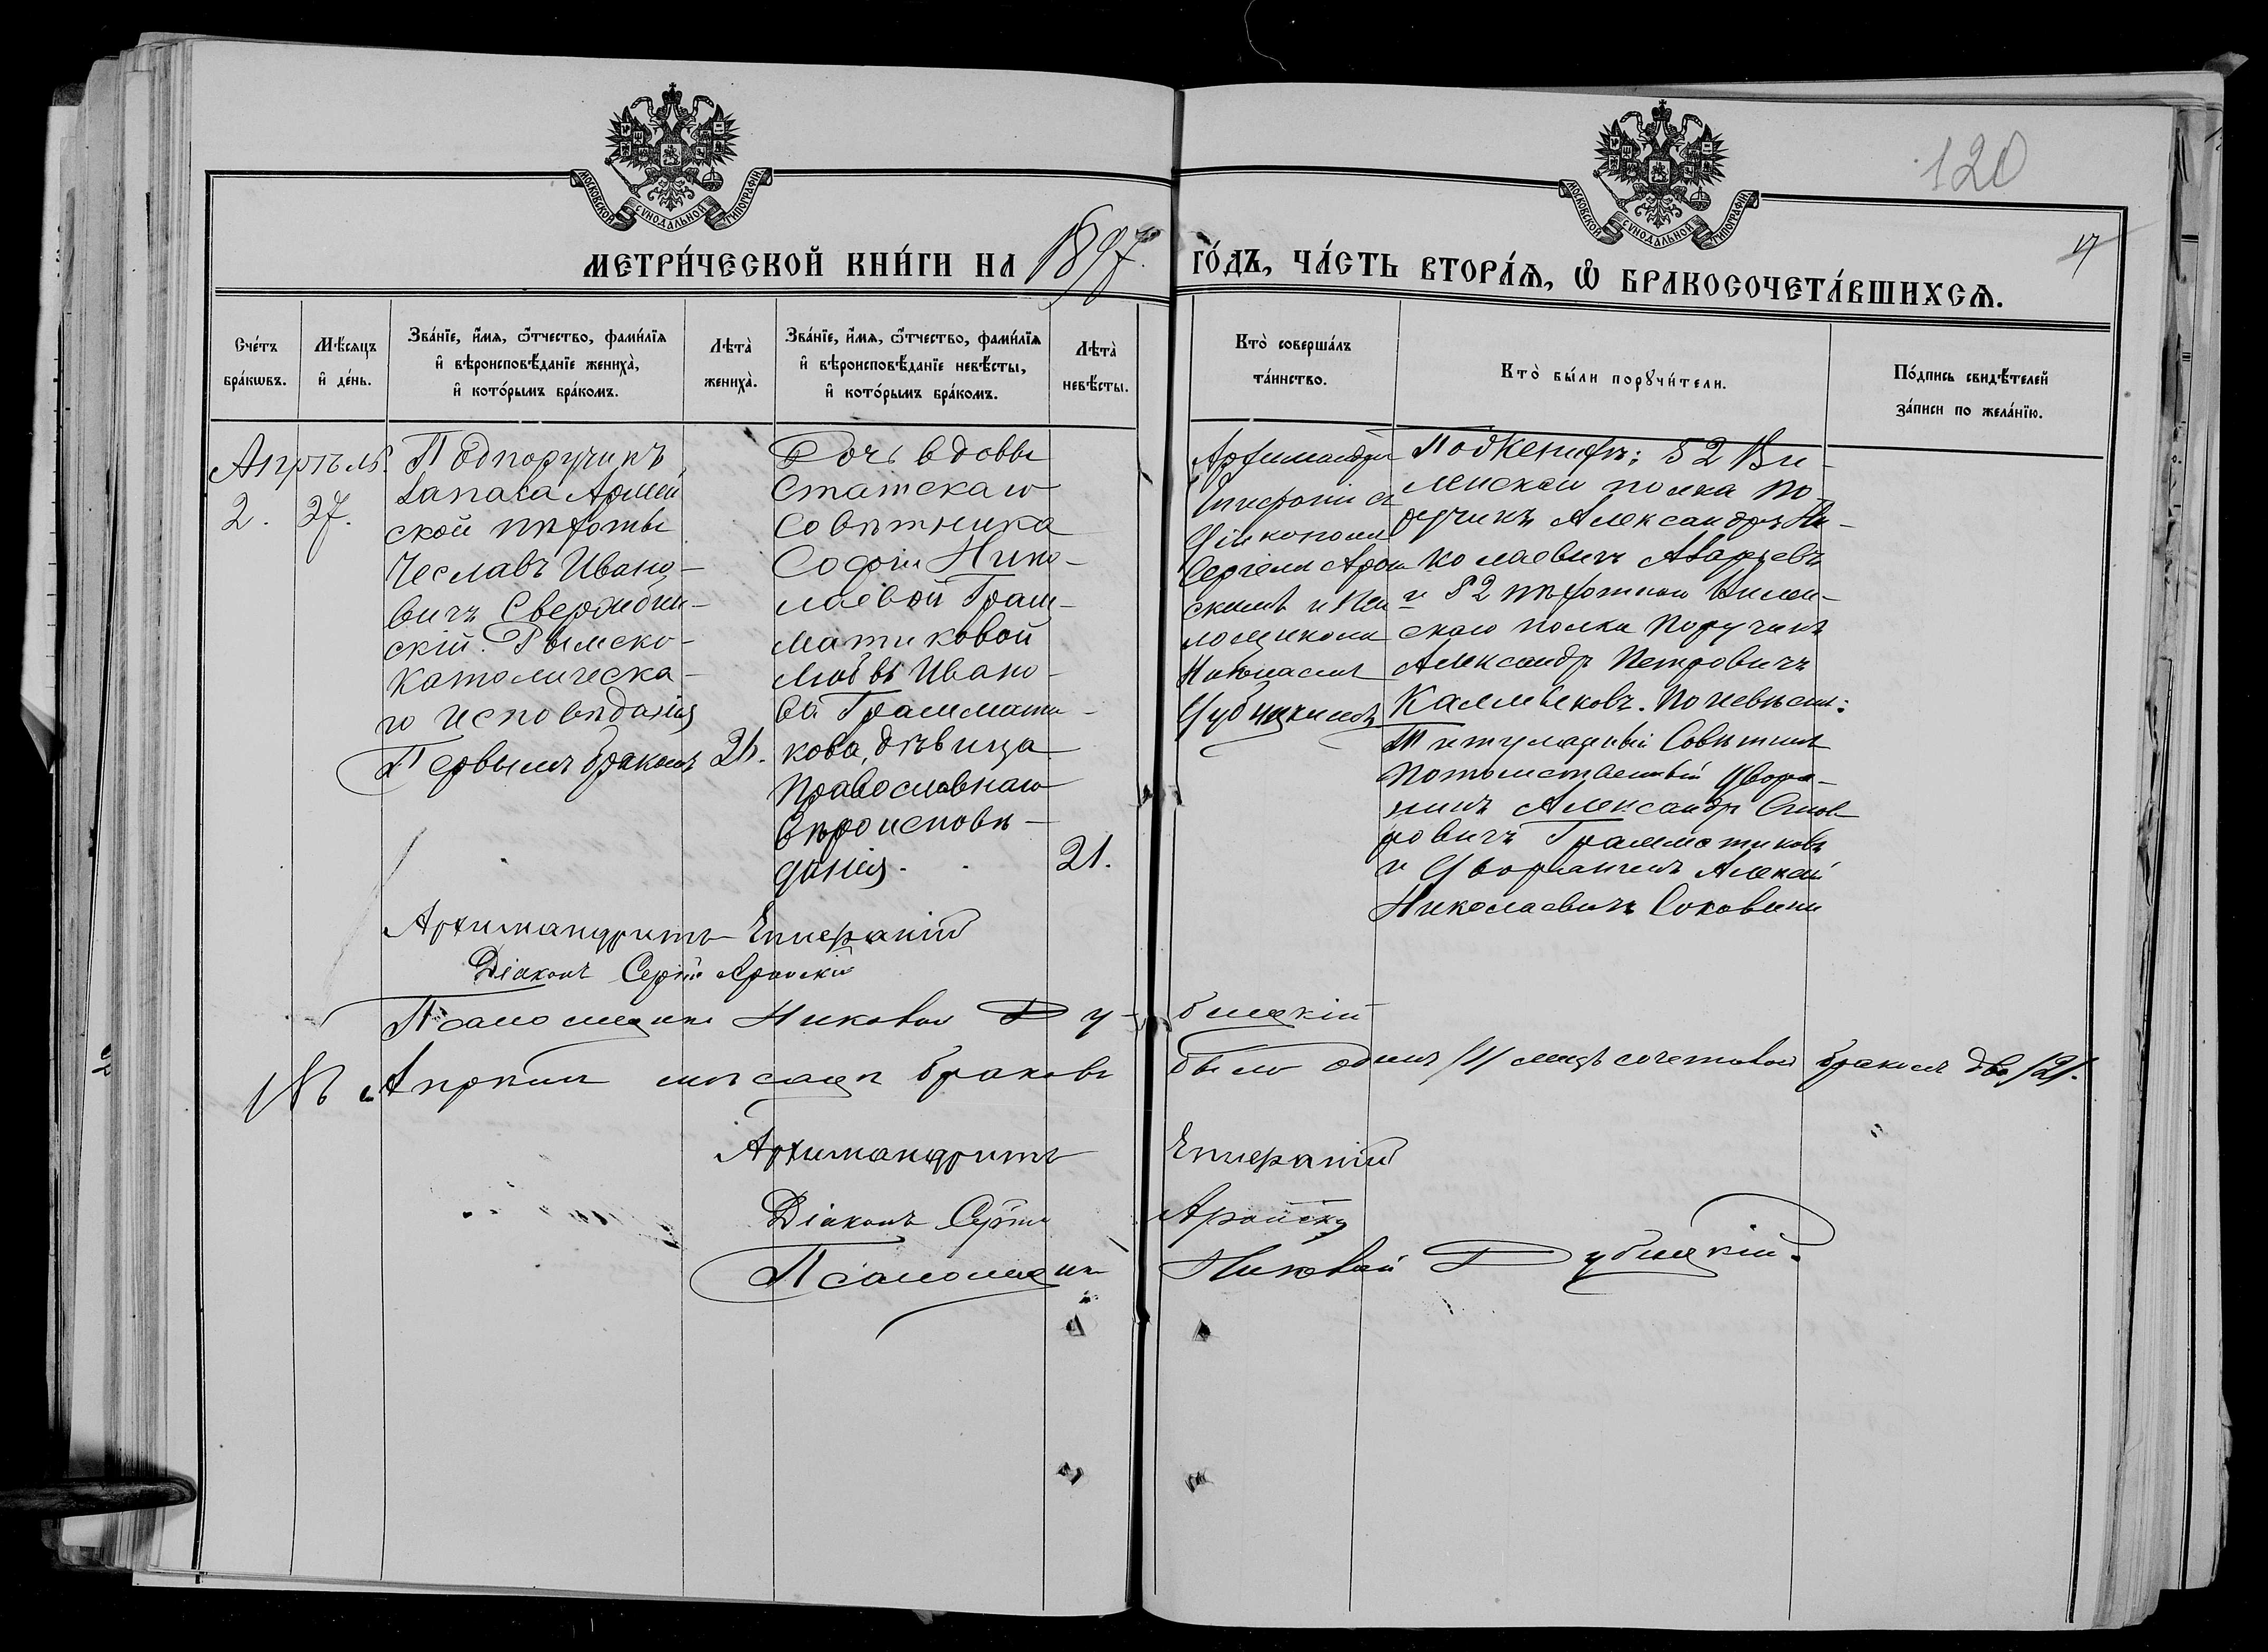 МОСКОВСКОЙ СѴНОДАЛЬНОЙ ТИПОГРАФІИ
МОСКОВСКОЙ СѴНОДАЛЬНОЙ ТИПОГРАФІИ
120
17
МЕТРИ́ЧЕСКОЙ КНИ́ГИ НА 1897 ГО́ДЪ, ЧА́СТЬ ВТОРА́Я, Ѽ БРАКОСОЧЕТА́ВШИХСѦ.
Счéтъ
брáкѡвъ.
Мѣ́сяцъ
и҆ де́нь.
Зва́нїе, и҆́мя, ѻ҆́тчество, фами́лїя
и҆ вѣроисповѣ́данїе жениха̀,
и҆ кото́рымъ бра́комъ.
Лѣта̀
жениха̀.
Зва́нїе, и҆́мя, ѻ҆́тчество, фами́лїя
и҆ вѣроисповѣ́данїе невѣ́сты,
и҆ кото́рымъ бра́комъ.
Лѣта̀
невѣ́сты.
Кто̀ соверша́лъ
та́инство.
Кто̀ бы́ли порꙋчи́тели.
По́дпись свидѣ́телей
за́писи по жела́нїю.
Апрѣль
2. 27.
Подпоручикъ
запаса Армей
ской пѣхоты
Чеславъ Ивано-
вичъ
скій. Римско-
Католическа-
го исповѣданія
Первымъ бракомъ 26.
Дочь вдовы
Статскаго
Совѣтника
Софіи Нико-
лаевой Грам-
матиковой
Любовь Ивано-
ва Граммати-
кова, дѣвица
Православнаго
вѣроисповѣ-
данія. 21.
Архимандри
Епифаній съ
Діакономъ
Сергіемъ Арой
скимъ и Пса
ломщикомъ
Николаемъ
Дубицкимъ
По женихѣ: 52 Ви-
ленскаго полка По-
ручикъ Александръ Ни-
колаевичъ
и 52 пѣхотнаго Вилен-
скаго полка Поручикъ
Александръ Петровичъ
Калмыковъ. По невѣстѣ:
Титулярный Совѣтникъ
Потомственный Дворя-
нинъ Александръ
Граммотиковъ
и Дворянинъ Алексѣй
Николаевичъ Соковнин
Архимандритъ Епифаній
Діаконъ Сергій Аройскій
Псаломщикъ Николай Дубицкій
Въ Апрѣлѣ мѣсяцѣ браковъ было одинъ /1/ лицъ сочетавш бракомъ два /2/.
Архимандритъ Епифаній
Діаконъ Сергій Аройскій
Псаломщикъ Николай Дубицкій.